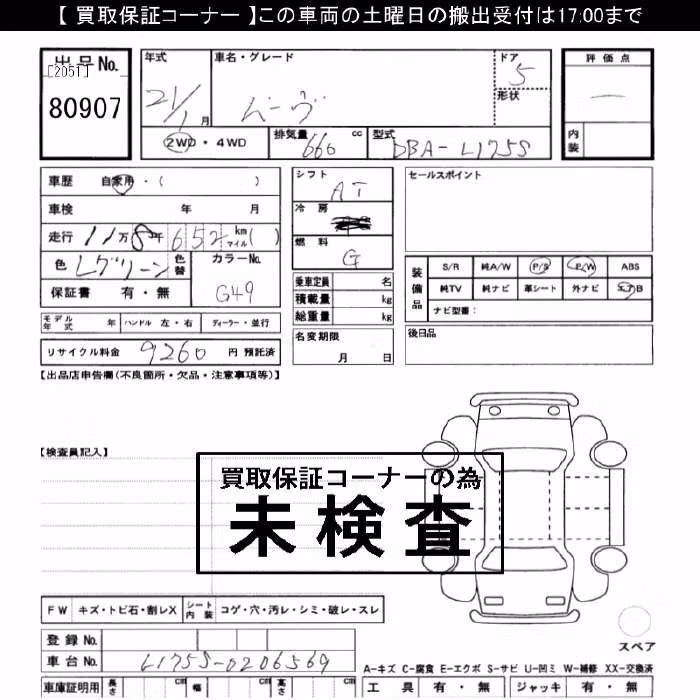 【 買取保証コーナー 】この車両の土曜日の搬出受付は17:00まで
出品No.
[2051]
80907
年式
21/1 月
車名・グレード
ムーヴ
ドア
5
形状
評価点
—
内装
2WD・4WD
排気量
660 cc
型式
DBA-L175S
車歴 自家用・( )
車検 年 月
走行 11万8千652 km マイル( )
色 Lグリーン
色替
カラーNo.
G49
保証書 有・無
シフト
AT
冷房
燃料
G
乗車定員 名
積載量 kg
総重量 kg
セールスポイント
装備品
S/R 純A/W P/S P/W ABS
純TV 純ナビ 革シート 外ナビ
ナビ型番：
モデル年式 年 ハンドル 左・右 ディーラー・並行
リサイクル料金 9260 円 預託済
名変期限
月 日
後日品
【出品店申告欄(不良箇所・欠品・注意事項等)】
【検査員記入】
買取保証コーナーの為
未検査
FW キズ・トビ石・割レX
シート内装 コゲ・穴・汚レ・シミ・破レ・スレ
スペア
登録No.
車台No. L175S-0206569
A-キズ C-腐食 E-エクボ S-サビ U-凹ミ W-補修 XX-交換済
車庫証明用 長さ cm 幅 cm 高さ cm
工具 有・無 ジャッキ 有・無